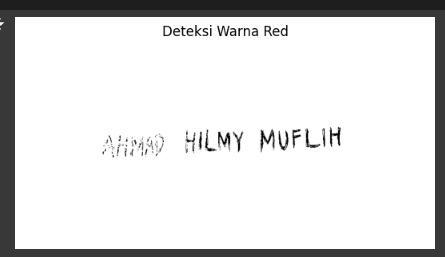 Deteksi Warna Red
AHMAD HILMY MUFLIH